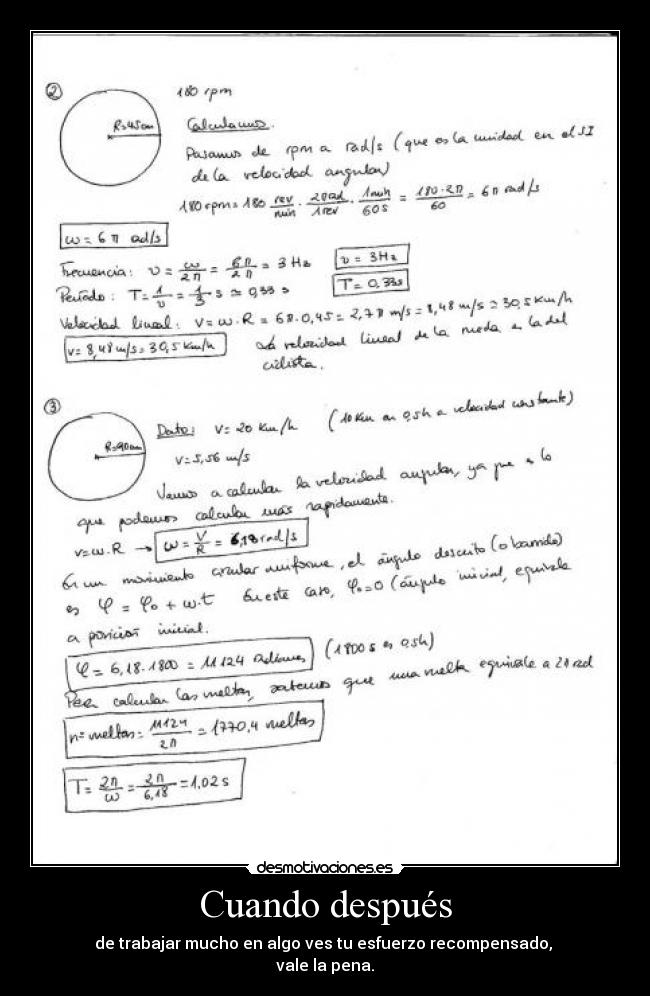 ②
180 rpm
R=45cm
Calculamos.
Pasamos de rpm a rad/s (que es la unidad en el SI
de la velocidad angular)
180 rpm = 180 rev/min · 2π rad/1 rev · 1 min/60 s = 180·2π/60 = 6π rad/s
ω = 6π rad/s
Frecuencia: ν = ω/2π = 6π/2π = 3 Hz
ν = 3Hz
Período: T = 1/ν = 1/3 s ≃ 0,33 s
T = 0,33s
Velocidad lineal: v = ω·R = 6π·0,45 = 2,7π m/s = 8,48 m/s ≃ 30,5 Km/h
v = 8,48 m/s = 30,5 Km/h
La velocidad lineal de la rueda es la del
ciclista.
③
R=90cm
Datos: v = 20 Km/h (10 Km en 0,5h a velocidad constante)
v = 5,56 m/s
Vamos a calcular la velocidad angular, ya que es lo
que podemos calcular más rapidamente.
v=ω.R → ω = v/R = 6,18 rad/s
En un movimiento circular uniforme, el ángulo descrito (o barrido)
es φ = φ₀ + ω·t En este caso, φ₀=0 (ángulo inicial, equivale
a posición inicial.
φ = 6,18·1800 = 11124 radianes (1800 s es 0,5h)
Para calcular las vueltas, sabemos que una vuelta equivale a 2π rad
nº vueltas = 11124/2π = 1770,4 vueltas
T = 2π/ω = 2π/6,18 = 1,02 s
desmotivaciones.es
Cuando después
de trabajar mucho en algo ves tu esfuerzo recompensado,
vale la pena.